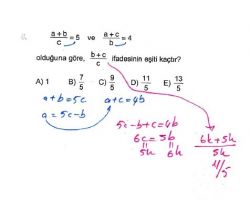 a+b/c = 5 ve a+c/b = 4
olduğuna göre, b+c/c ifadesinin eşiti kaçtır?
A) 1 B) 7/5 C) 9/5 D) 11/5 E) 13/5
a+b=5c a+c=4b
a=5c-b
5c-b+c=4b
6c=5b
5k 6k
6k+5k/5k
11/5